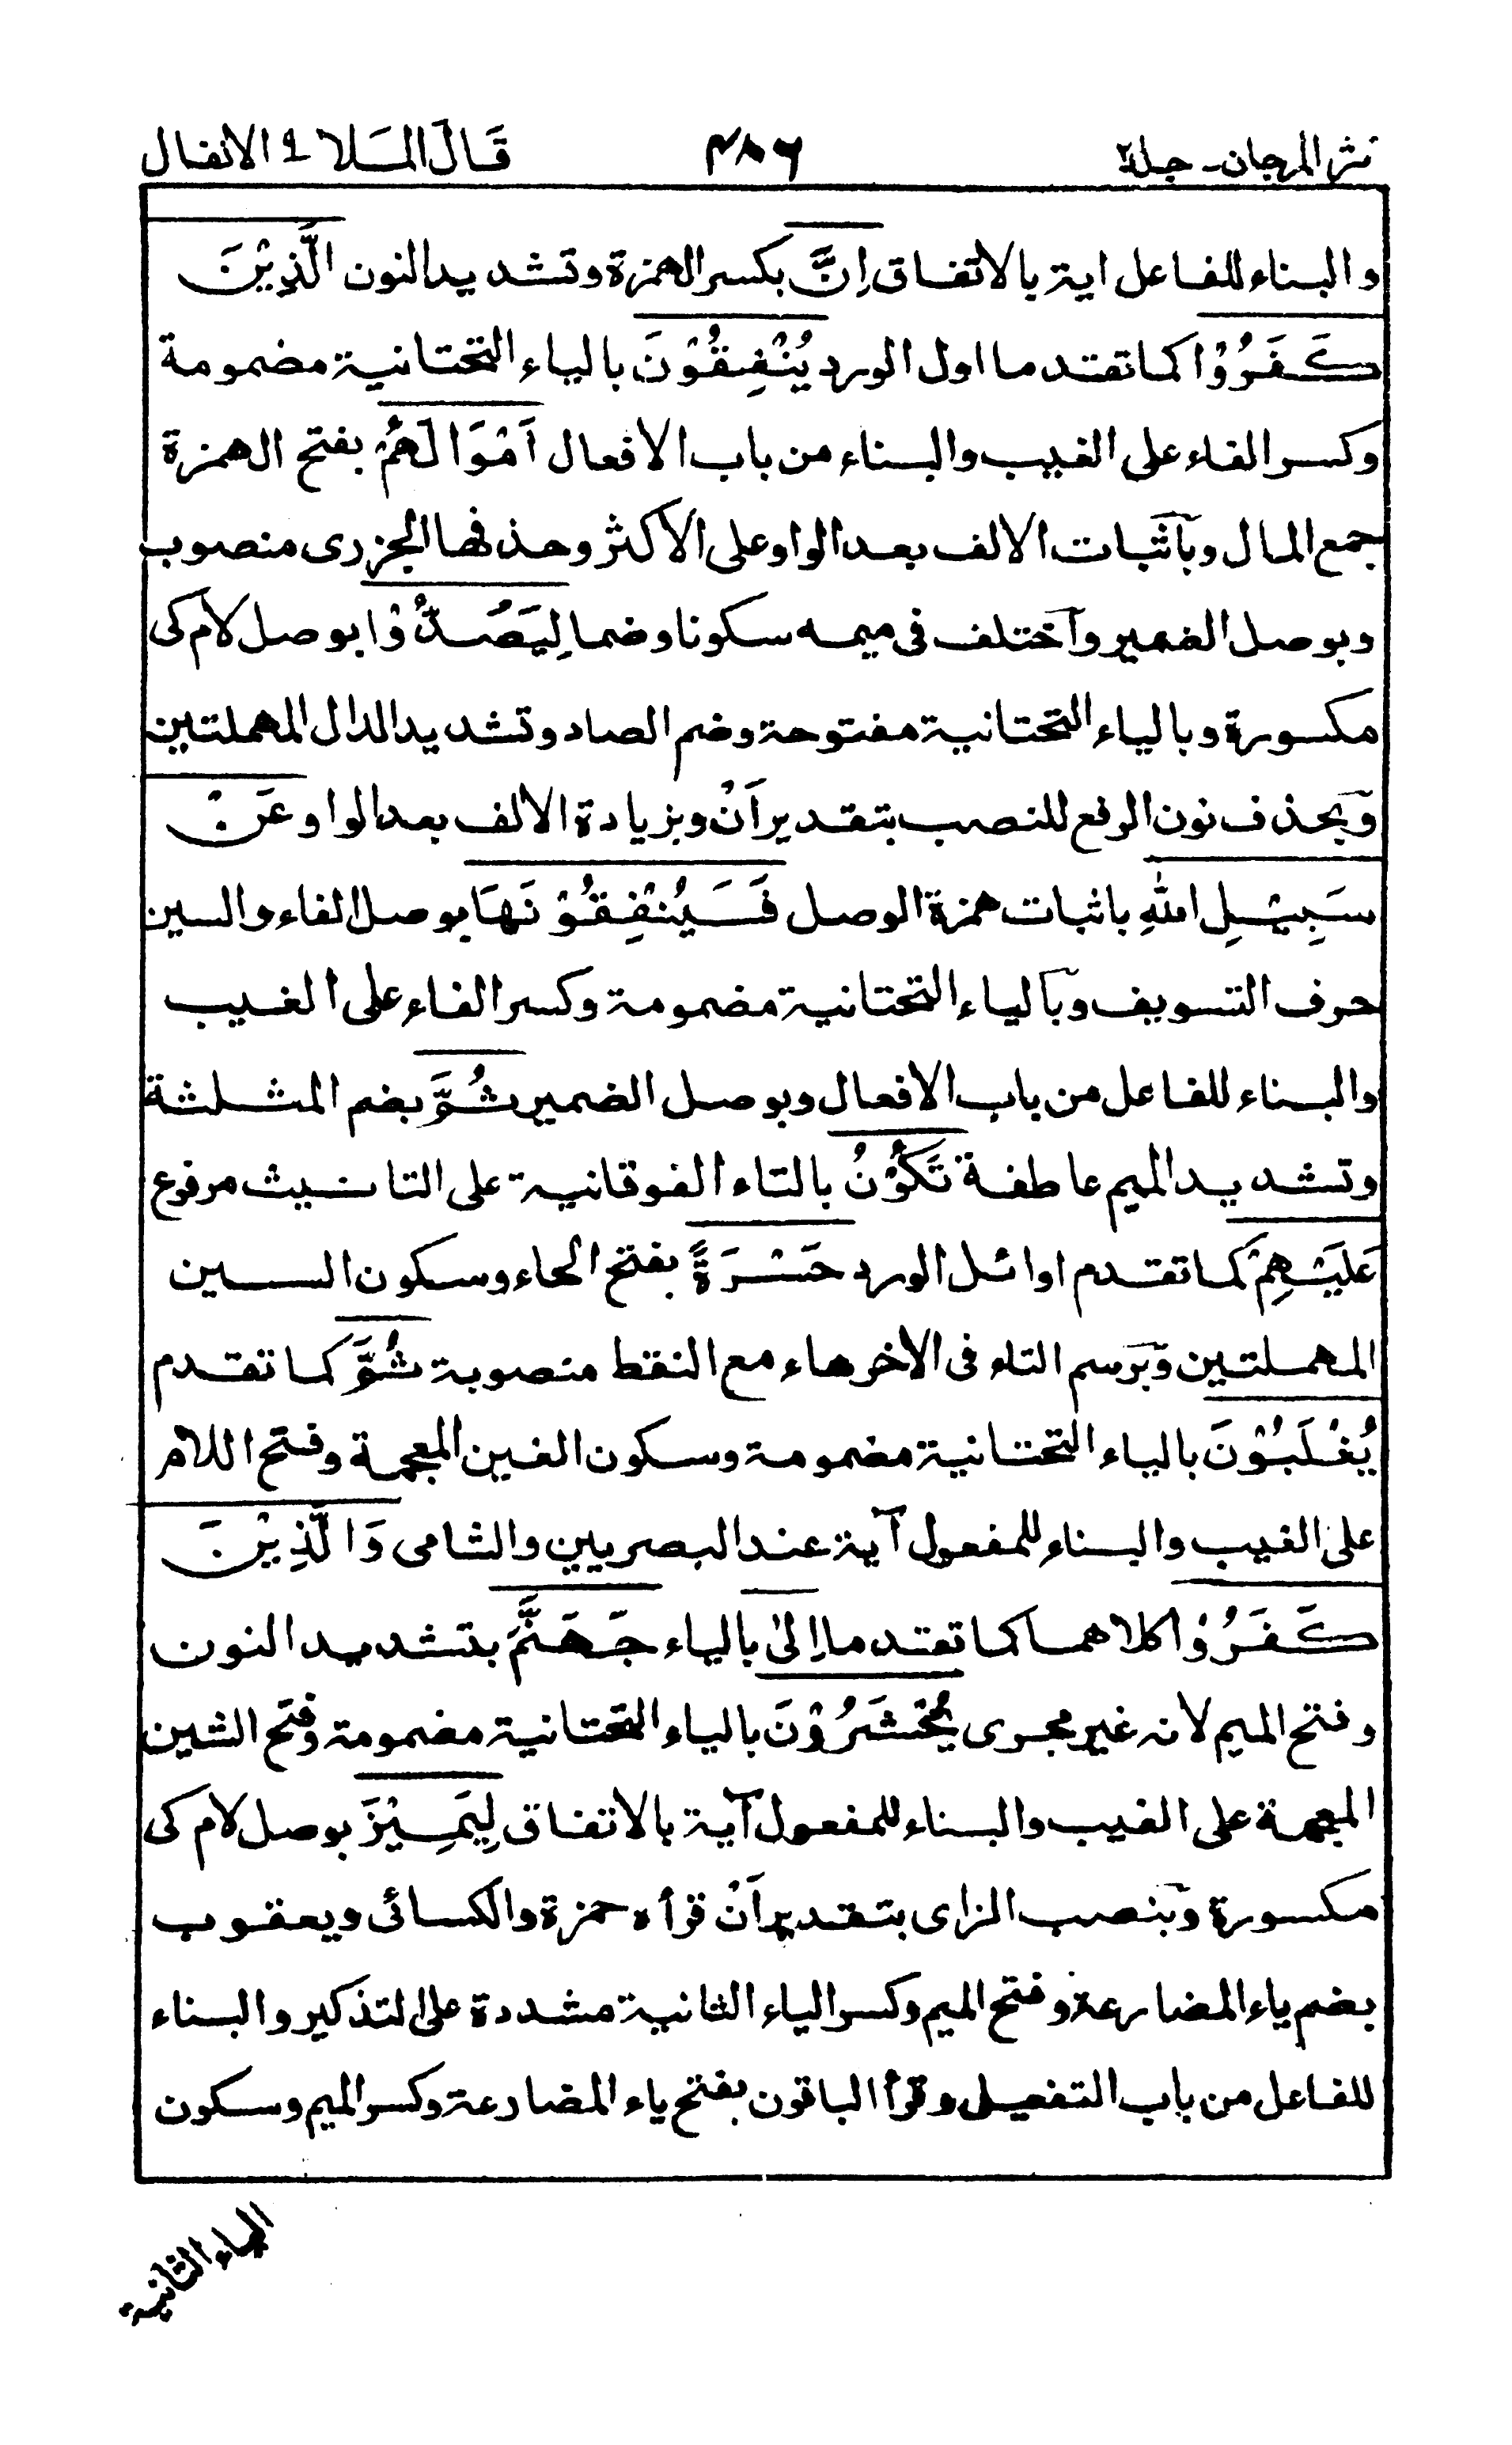 نثر المرجان - جلد۲ ۴۸۶ قَالَ المَلا ۹ الانفال
والبناء للفاعل اية بالاتفاق اِنَّ بكسر الهمزة وتشديد النون الَّذِيْنَ
كَفَرُوْا كما تقدما اول الورد يُنْفِقُوْنَ بالياء التحتانية مضمومة
وكسر الفاء على الغيب والبناء من باب الافعال اَمْوَالَهُمْ بفتح الهمزة
جمع المال وبآثبات الالف بعد الواو على الاكثر وحذفها الجزرى منصوب
وبوصل الضمير وآختلف فى ميمه سكونا وضما لِيَصُدُّوْا بوصل لام كى
مكسورة وبالياء التحتانية مفتوحة وضم الصاد وتشديد الدال المهملتين
وَبحذف نون الرفع للنصب بتقدير اَنْ وبزيادة الالف بعد الواو عَنْ
سَبِيْلِ اللهِ باثبات همزة الوصل فَسَيُنْفِقُوْنَهَا بوصل الفاء والسين
حرف التسويف وبآلياء التحتانية مضمومة وكسر الفاء على الغيب
والبناء للفاعل من باب الافعال وبوصل الضمير ثُمَّ بضم المثلثة
وتشديد الميم عاطفة تَكُوْنُ بالتاء الفوقانية على التانيث مرفوع
عَلَيْهِمْ كما تقدم اوائل الورد حَسْرَةً بفتح الحاء وسكون السين
المهملتين وَبرسم التاء فى الاخر هاء مع النقط منصوبة ثُمَّ كما تقدم
يُغْلَبُوْنَ بالياء التحتانية مضمومة وسكون الغين المعجمة وفتح اللام
على الغيب والبناء للمفعول آية عند البصريين والشامى وَالَّذِيْنَ
كَفَرُوْا كلاهما كما تقدما اِلىٰ بالياء جَهَنَّمَ بتشديد النون
وفتح الميم لانه غير مجرى يُحْشَرُوْنَ بالياء التحتانية مضمومة وفتح الشين
المعجمة على الغيب والبناء للمفعول آية بالاتفاق لِيَمِيْزَ بوصل لام كى
مكسورة وبَنصب الزاى بتقدير اَنْ قرأه حمزة والكسائى ويعقوب
بضم ياء المضارعة وفتح الميم وكسر الياء الثانية مشددة على التذكير والبناء
للفاعل من باب التفعيل وقرأ الباقون بفتح ياء المضارعة وكسر الميم وسكون
الياء الثانية